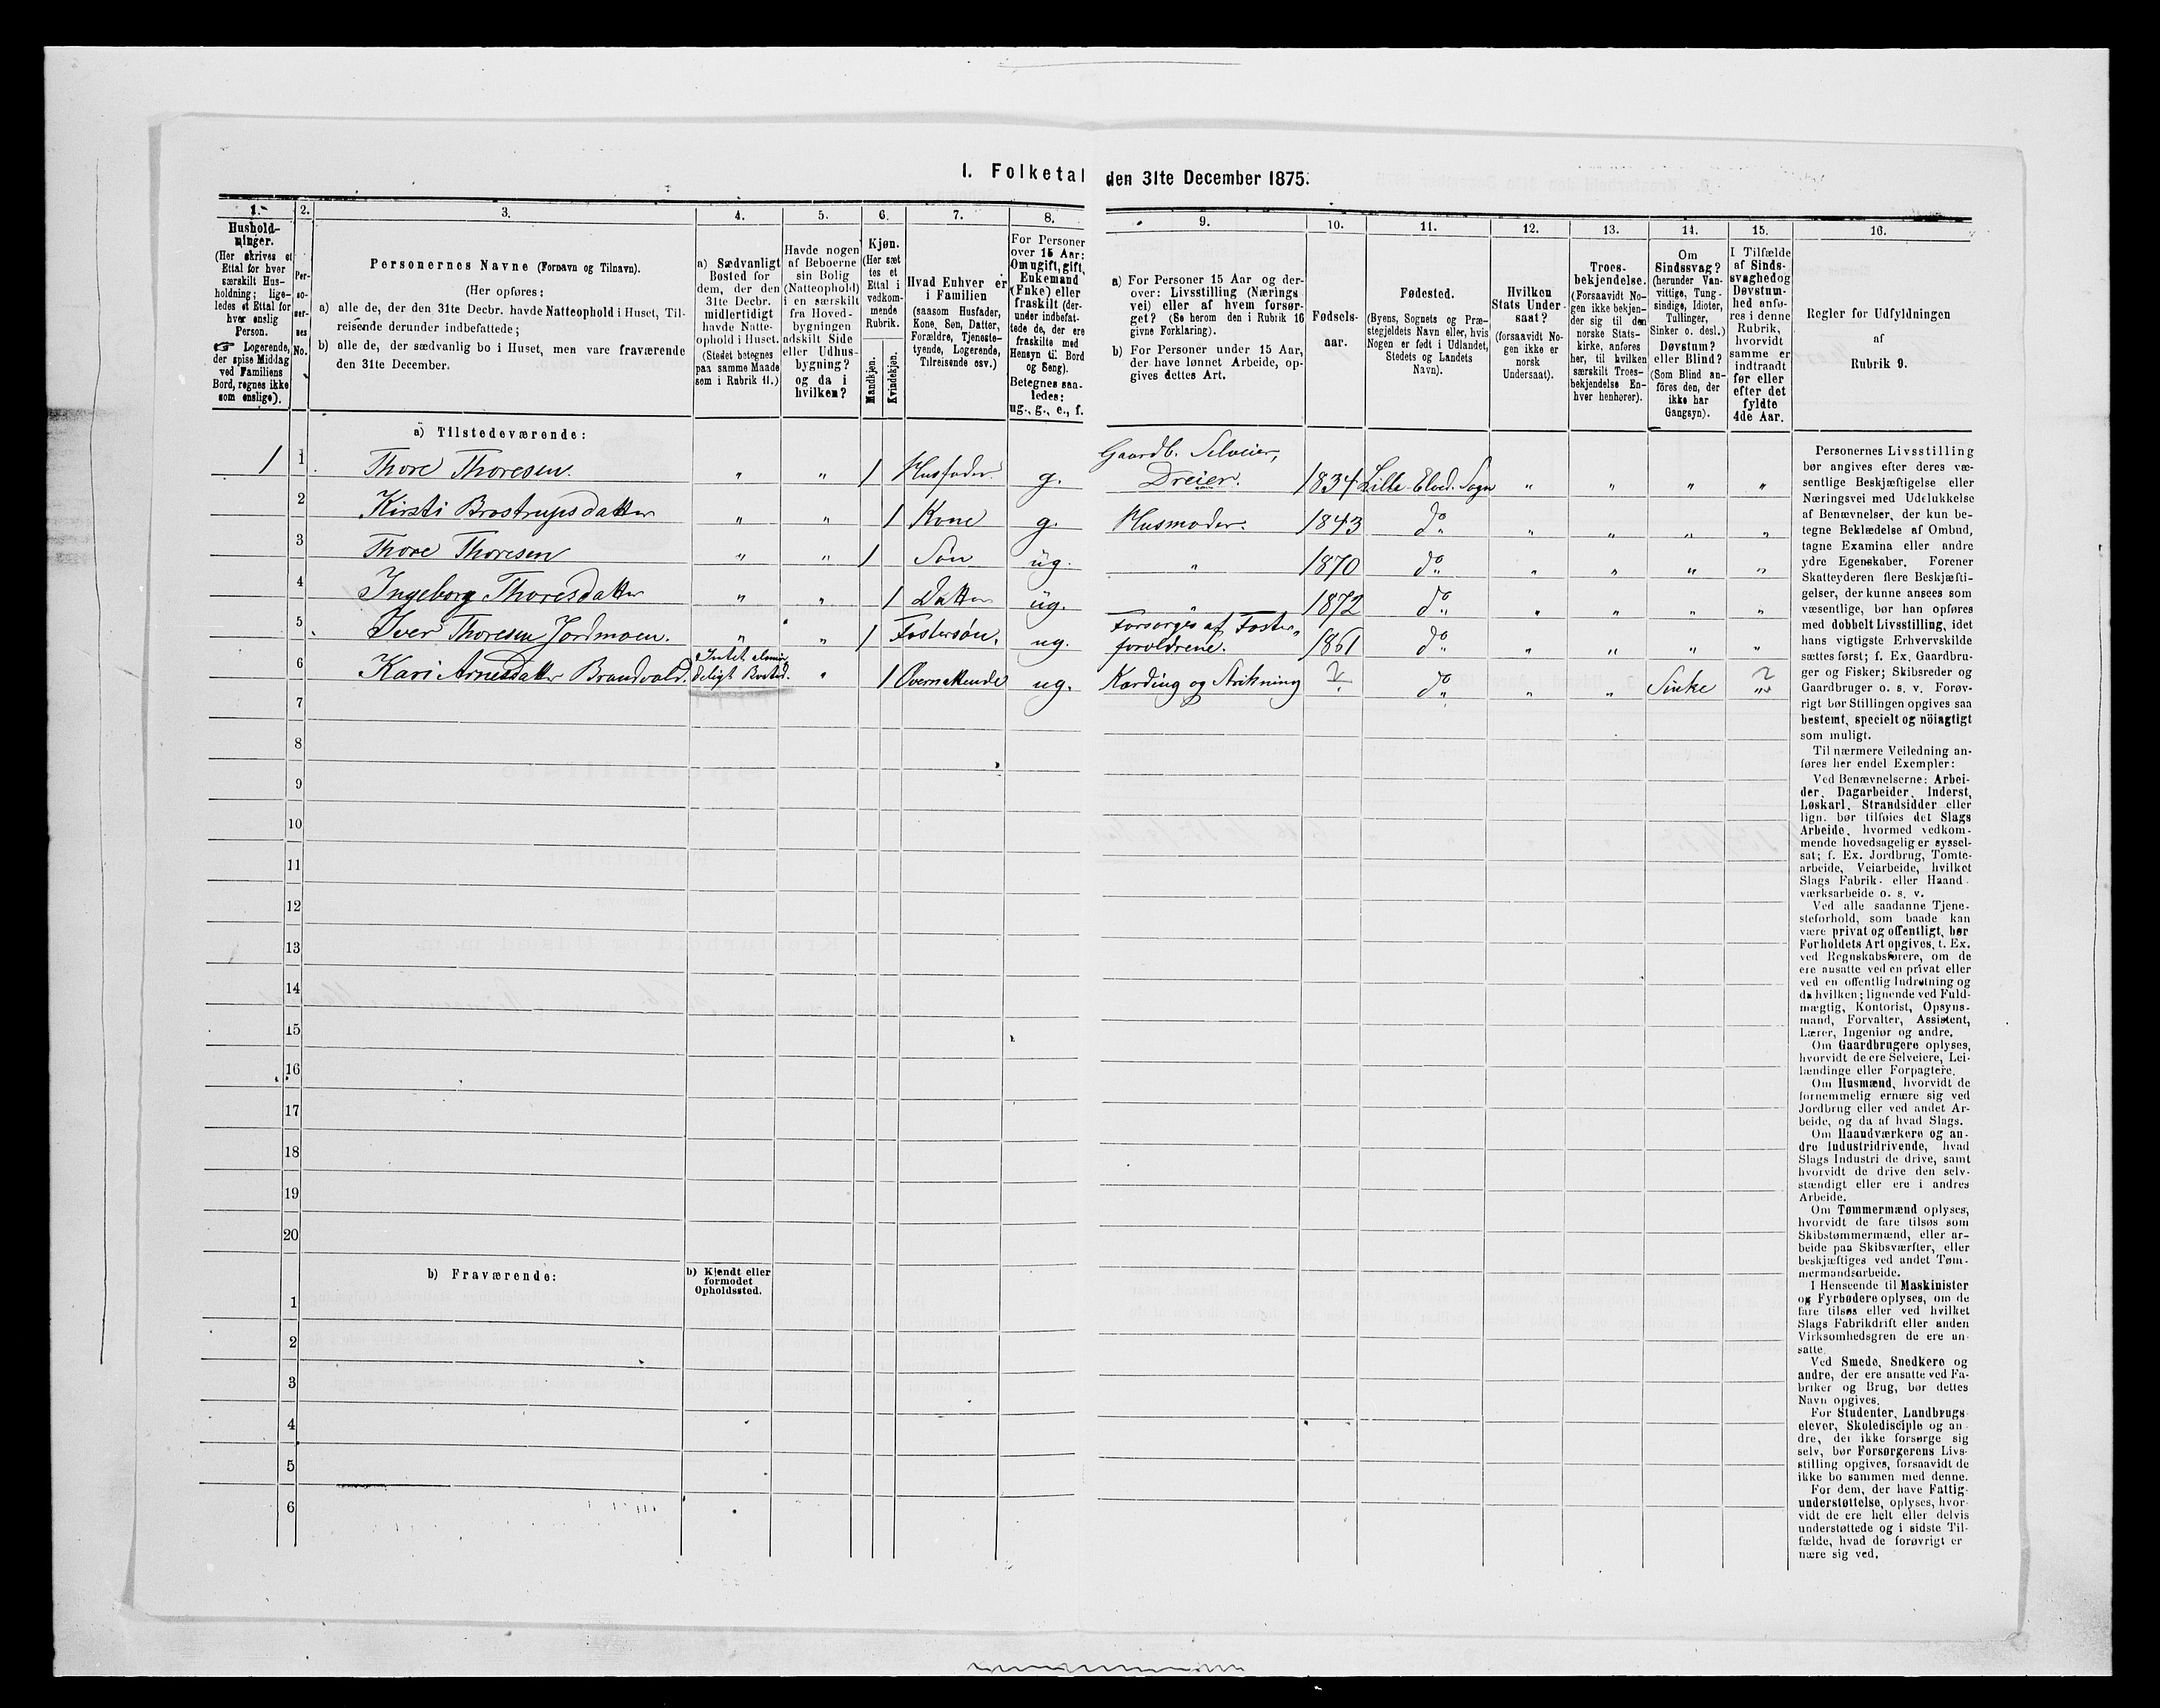 I. Folketal den 31te December 1875.
1. 2. 3. 4. 5. 6. 7. 8. 9. 10. 11. 12. 13. 14. 15. 16.
Hushold-
ninger.
(Her skrives et
Ettal for hver
særskilt Hus-
holdning; lige-
ledes et Ettal for
hver enslig
Person.
☞ Logerende,
der spise Middag
ved Familiens
Bord, regnes ikke
som enslige).
Per-
so-
ner-
nes
No.
Personernes Navne (Fornavn og Tilnavn).
(Her opføres:
a) alle de, der den 31te Decbr. havde Natteophold i Huset, Til-
reisende derunder indbefattede;
b) alle de, der sædvanlig bo i Huset, men vare fraværende
den 31te December.
a) Sædvanligt
Bosted for
dem, der den
31te Decbr.
midlertidigt
havde Natte-
ophold i Huset.
(Stedet betegnes
paa samme Maade
som i Rubrik 11.)
Havde nogen
af Beboerne
sin Bolig
(Natteophold)
i en særskilt
fra Hoved-
bygningen
adskilt Side
eller Udhus-
bygning?
og da i
hvilken?
Kjøn.
(Her sæt
tes et
Ettal i
vedkom-
mende
Rubrik.
Mandkjøn.
Kvindekjøn.
Hvad Enhver er
i Familien
(saasom Husfader,
Kone, Søn, Datter,
Forældre, Tjeneste-
tyende, Logerende,
Tilreisende osv.)
For Personer
over 15 Aar:
Om ugift, gift,
Enkemand
(Enke) eller
fraskilt (der-
under indbefat-
tede de, der ere
fraskilte med
Hensyn til Bord
og Seng).
Betegnes saa-
ledes:
ug., g., e., f.
a) For Personer 15 Aar og der-
over: Livsstilling (Nærings
vei) eller af hvem forsør-
get? (Se herom den i Rubrik 16
givne Forklaring).
b) For Personer under 15 Aar,
der have lønnet Arbeide, op-
gives dettes Art.
Fødsels-
aar.
Fødested.
(Byens, Sognets og Præ-
stegjeldets Navn eller, hvis
Nogen er født i Udlandet,
Stedets og Landets
Navn).
Hvilken
Stats Under-
saat?
(forsaavidt No-
gen ikke er
norsk
Undersaat).
Troes-
bekjendelse.
(Forsaavidt No-
gen ikke bekjen-
der sig til den
norske Stats-
kirke, anføres
her, til hvilken
særskilt Troes-
bekjendelse En-
hver henhører).
Om
Sindssvag?
(herunder Van-
vittige, Tung-
sindige, Idioter,
Tullinger,
Sinker o. desl.)
Døvstum?
eller Blind?
(Som Blind an-
föres den, der
ikke har
Gangsyn).
I Tilfælde
af Sinds-
svaghed og
Døvstum-
hed anfø-
res i denne
Rubrik,
hvorvidt
samme er
indtraadt
før eller
efter det
fyldte
4de Aar.
Regler for Udfyldningen
af
Rubrik 9.
a) Tilstedeværende:
1 1 Thore Thoresen. " " 1 Husfader g. Gaardb. Selveier,
Dreier. 1834 Lille-Elved. Sogn " " " "
2 Kirsti Brostrupsdatter " " 1 Kone g. Husmoder. 1843 do " " " "
3 Thore Thoresen " " 1 Søn ug. " 1870 do " " " "
4 Ingeborg Thoresdatter " " 1 Datter ug. " 1872 do " " " "
5 Iver Thoresen Jordmoen. " " 1 Fostersøn. ug. Forsørges af Foster-
forældrene. 1861 do " " " "
6 Kari Arnesdatter Brandvold. Intet almin-
deligt Bosted. " 1 Overnattende ug. Karding og Strikning ? do " " Sinke ?
7
8
9
10
11
12
13
14
15
16
17
18
19
20
b) Fraværende:
b) Kjendt eller
formodet
Opholdssted.
1
2
3
4
5
6
Personernes Livsstilling
bør angives efter deres væ-
sentlige Beskjæftigelse eller
Næringsvei med Udelukkelse
af Benævnelser, der kun be-
tegne Beklædelse af Ombud,
tagne Examina eller andre
ydre Egenskaber. Forener
Skatteyderen flere Beskjæfti-
gelser, der kunne ansees som
væsentlige, bør han opføres
med dobbelt Livsstilling, idet
hans vigtigste Erhvervskilde
sættes først; f. Ex. Gaardbru-
ger og Fisker; Skibsreder og
Gaardbruger o. s. v. Forøv-
rigt bør Stillingen opgives saa
bestemt, specielt og nöiagtigt
som muligt.
Til nærmere Veiledning an-
føres her endel Exempler:
Ved Benævnelserne: Arbei-
der, Dagarbeider, Inderst,
Løskarl, Strandsidder eller
lign. bør tilføies det Slags
Arbeide, hvormed vedkom-
mende hovedsagelig er syssel-
sat; f. Ex. Jordbrug, Tomte-
arbeide, Veiarbeide, hvilket
Slags Fabrik- eller Haand-
værksarbeide o. s. v.
Ved alle saadanne Tjene-
steforhold, som baade kan
være privat og offentligt, bør
Forholdets Art opgives, t. Ex.
ved Regnskabsførere, om de
ere ansatte ved en privat eller
ved en offentlig Indretning og
da hvilken; lignende ved Fuld-
mægtig, Kontorist, Opsyns-
mand, Forvalter, Assistent,
Lærer, Ingeniør og andre.
Om Gaardbrugere oplyses,
hvorvidt de ere Selveiere, Lei-
lændinge eller Forpagtere.
Om Husmænd, hvorvidt de
fornemmelig ernære sig ved
Jordbrug eller ved andet Ar-
beide, og da af hvad Slags.
Om Haandværkere og an-
dre Industridrivende, hvad
Slags Industri de drive, samt
hvorvidt de drive den selv-
stændigt eller ere i andres
Arbeide.
Om Tømmermænd oplyses,
hvorvidt de fare tilsøs som
Skibstømmermænd, eller ar-
beide paa Skibsværfter, eller
beskjæftiges ved andet Tøm-
mermandsarbeide.
I Henseende til Maskinister
og Fyrbødere oplyses, om de
fare tilsøs eller ved hvilket
Slags Fabrikdrift eller anden
Virksomhedsgren de ere an-
satte.
Ved Smede, Snedkere og
andre, der ere ansatte ved Fa-
briker og Brug, bør dettes
Navn opgives.
For Studenter, Landbrugs-
elever, Skoledisciple og an-
dre, der ikke forsørge sig
selv, bør Forsørgerens Livs-
stilling opgives, forsaavidt de
ikke bo sammen med denne.
For dem, der have Fattig-
understøttelse, oplyses, hvor-
vidt de ere helt eller delvis
understøttede og i sidste Til-
fælde, hvad de forøvrigt er
nære sig ved.